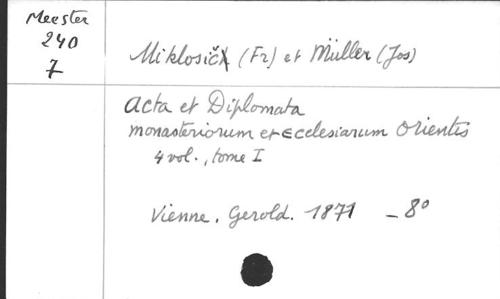 Meester
240
7
Miklosič (Fr) et Müller (Jos)
Acta et Diplomata
monasteriorum et Ecclesiarum Orientis
4 vol., tome I
Vienne. Gerold. 1871 - 8°